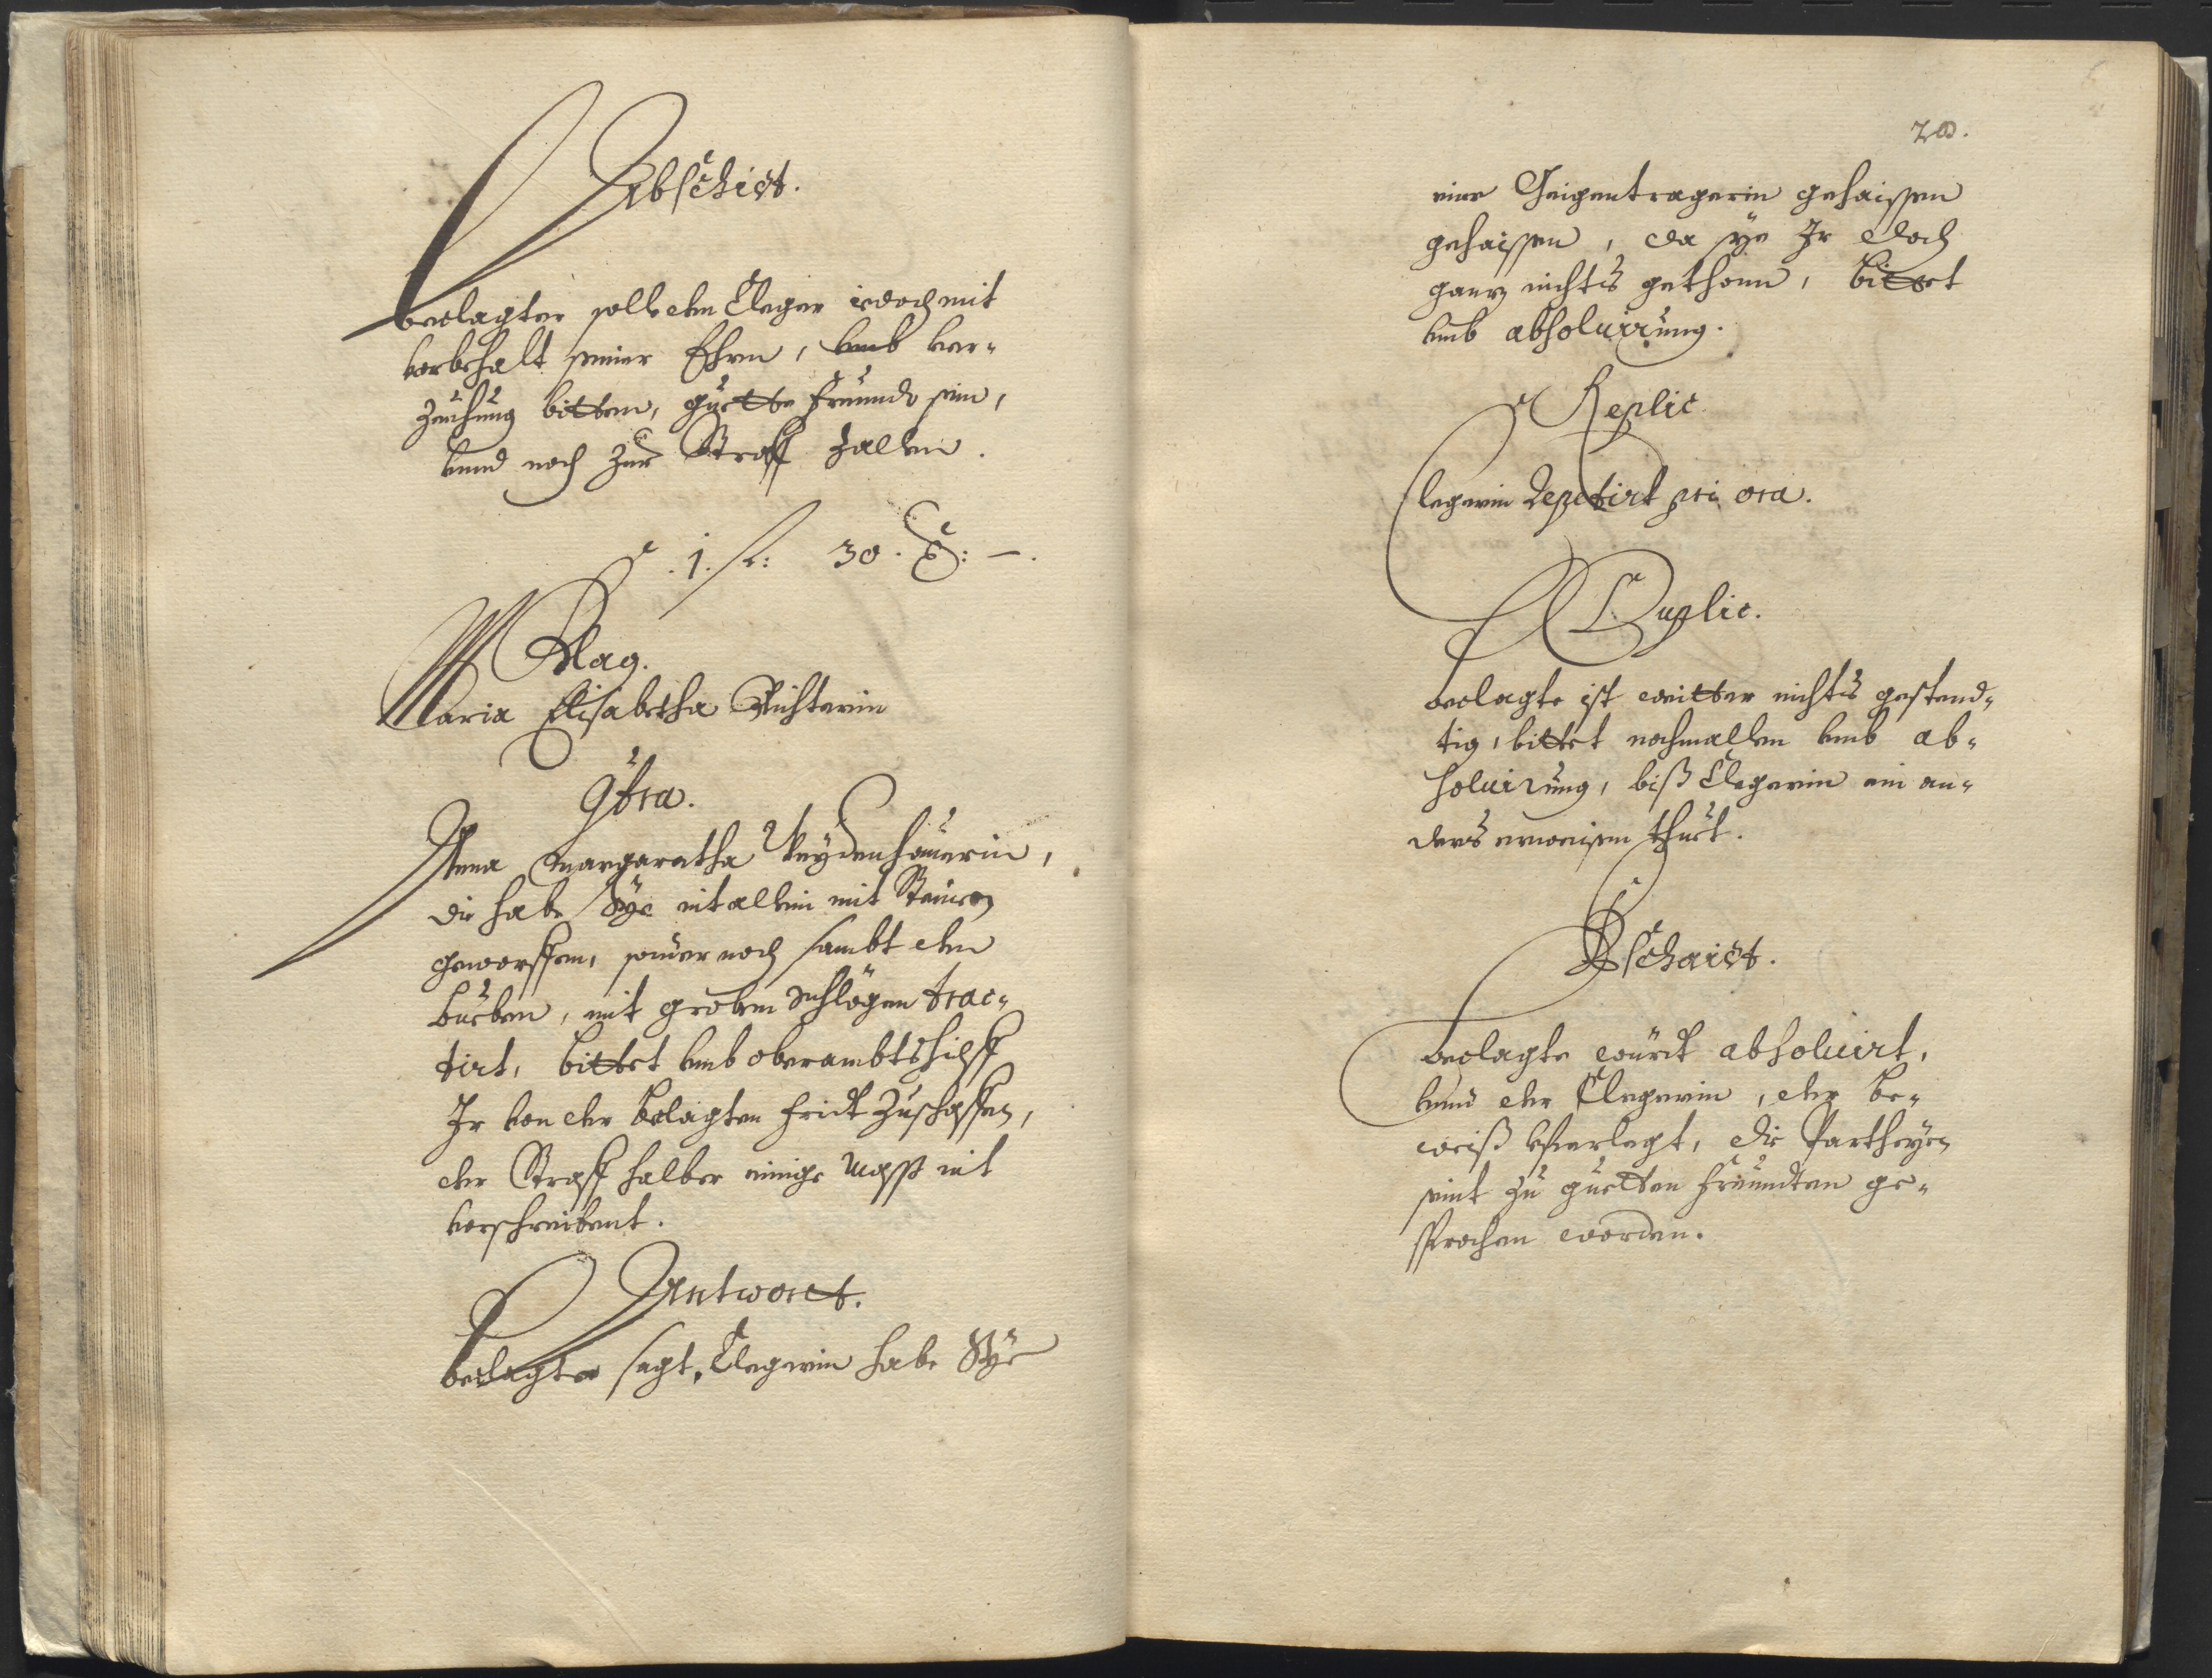 Abschidt.
Beclagter solle dem Cleger iedoch mit
vorbehalt seiner Ehren, umb ver-
zeichung bitten, guette freundt sein,
vnnd noch zur Straff zallen.
.1. fl: 30. X: —.
Klag.
Maria Elisabetha Richterin
Cötra.
Anna Margaretha Weydenhauerin,
die habe Sye nit allein mit Stainen
geworffen, sonder noch sambt dem
Bueben, mit groben schlögen trac-
tirt, bittet vmb oberambtshilff
Jr von der Beclagten fridt zuschaffen,
der Straff halber einige mass nit
vorschreibent.
Antwortt.
Beclagte sagt, Clegerin habe Sye
20.
eine Geigentragerin gehaissen
gehaissen, da sye Jr doch
ganz nichts gethonn, bittet
vmb absoluirung.
Replic
Clegerin Repetirt priora.
Duplic.
Beclagte ist weitter nichts gestend-
tig, bittet nochmallen vmb ab-
soluirung, biß Clegerin ein an-
ders erweisen thuet.
Bschaidt.
Beclagte würdt absoluirt,
vnnd der Clegerin, der Be-
weiß vferlegt, die Partheyen
seint zu guetten freundten ge-
sprochen worden.